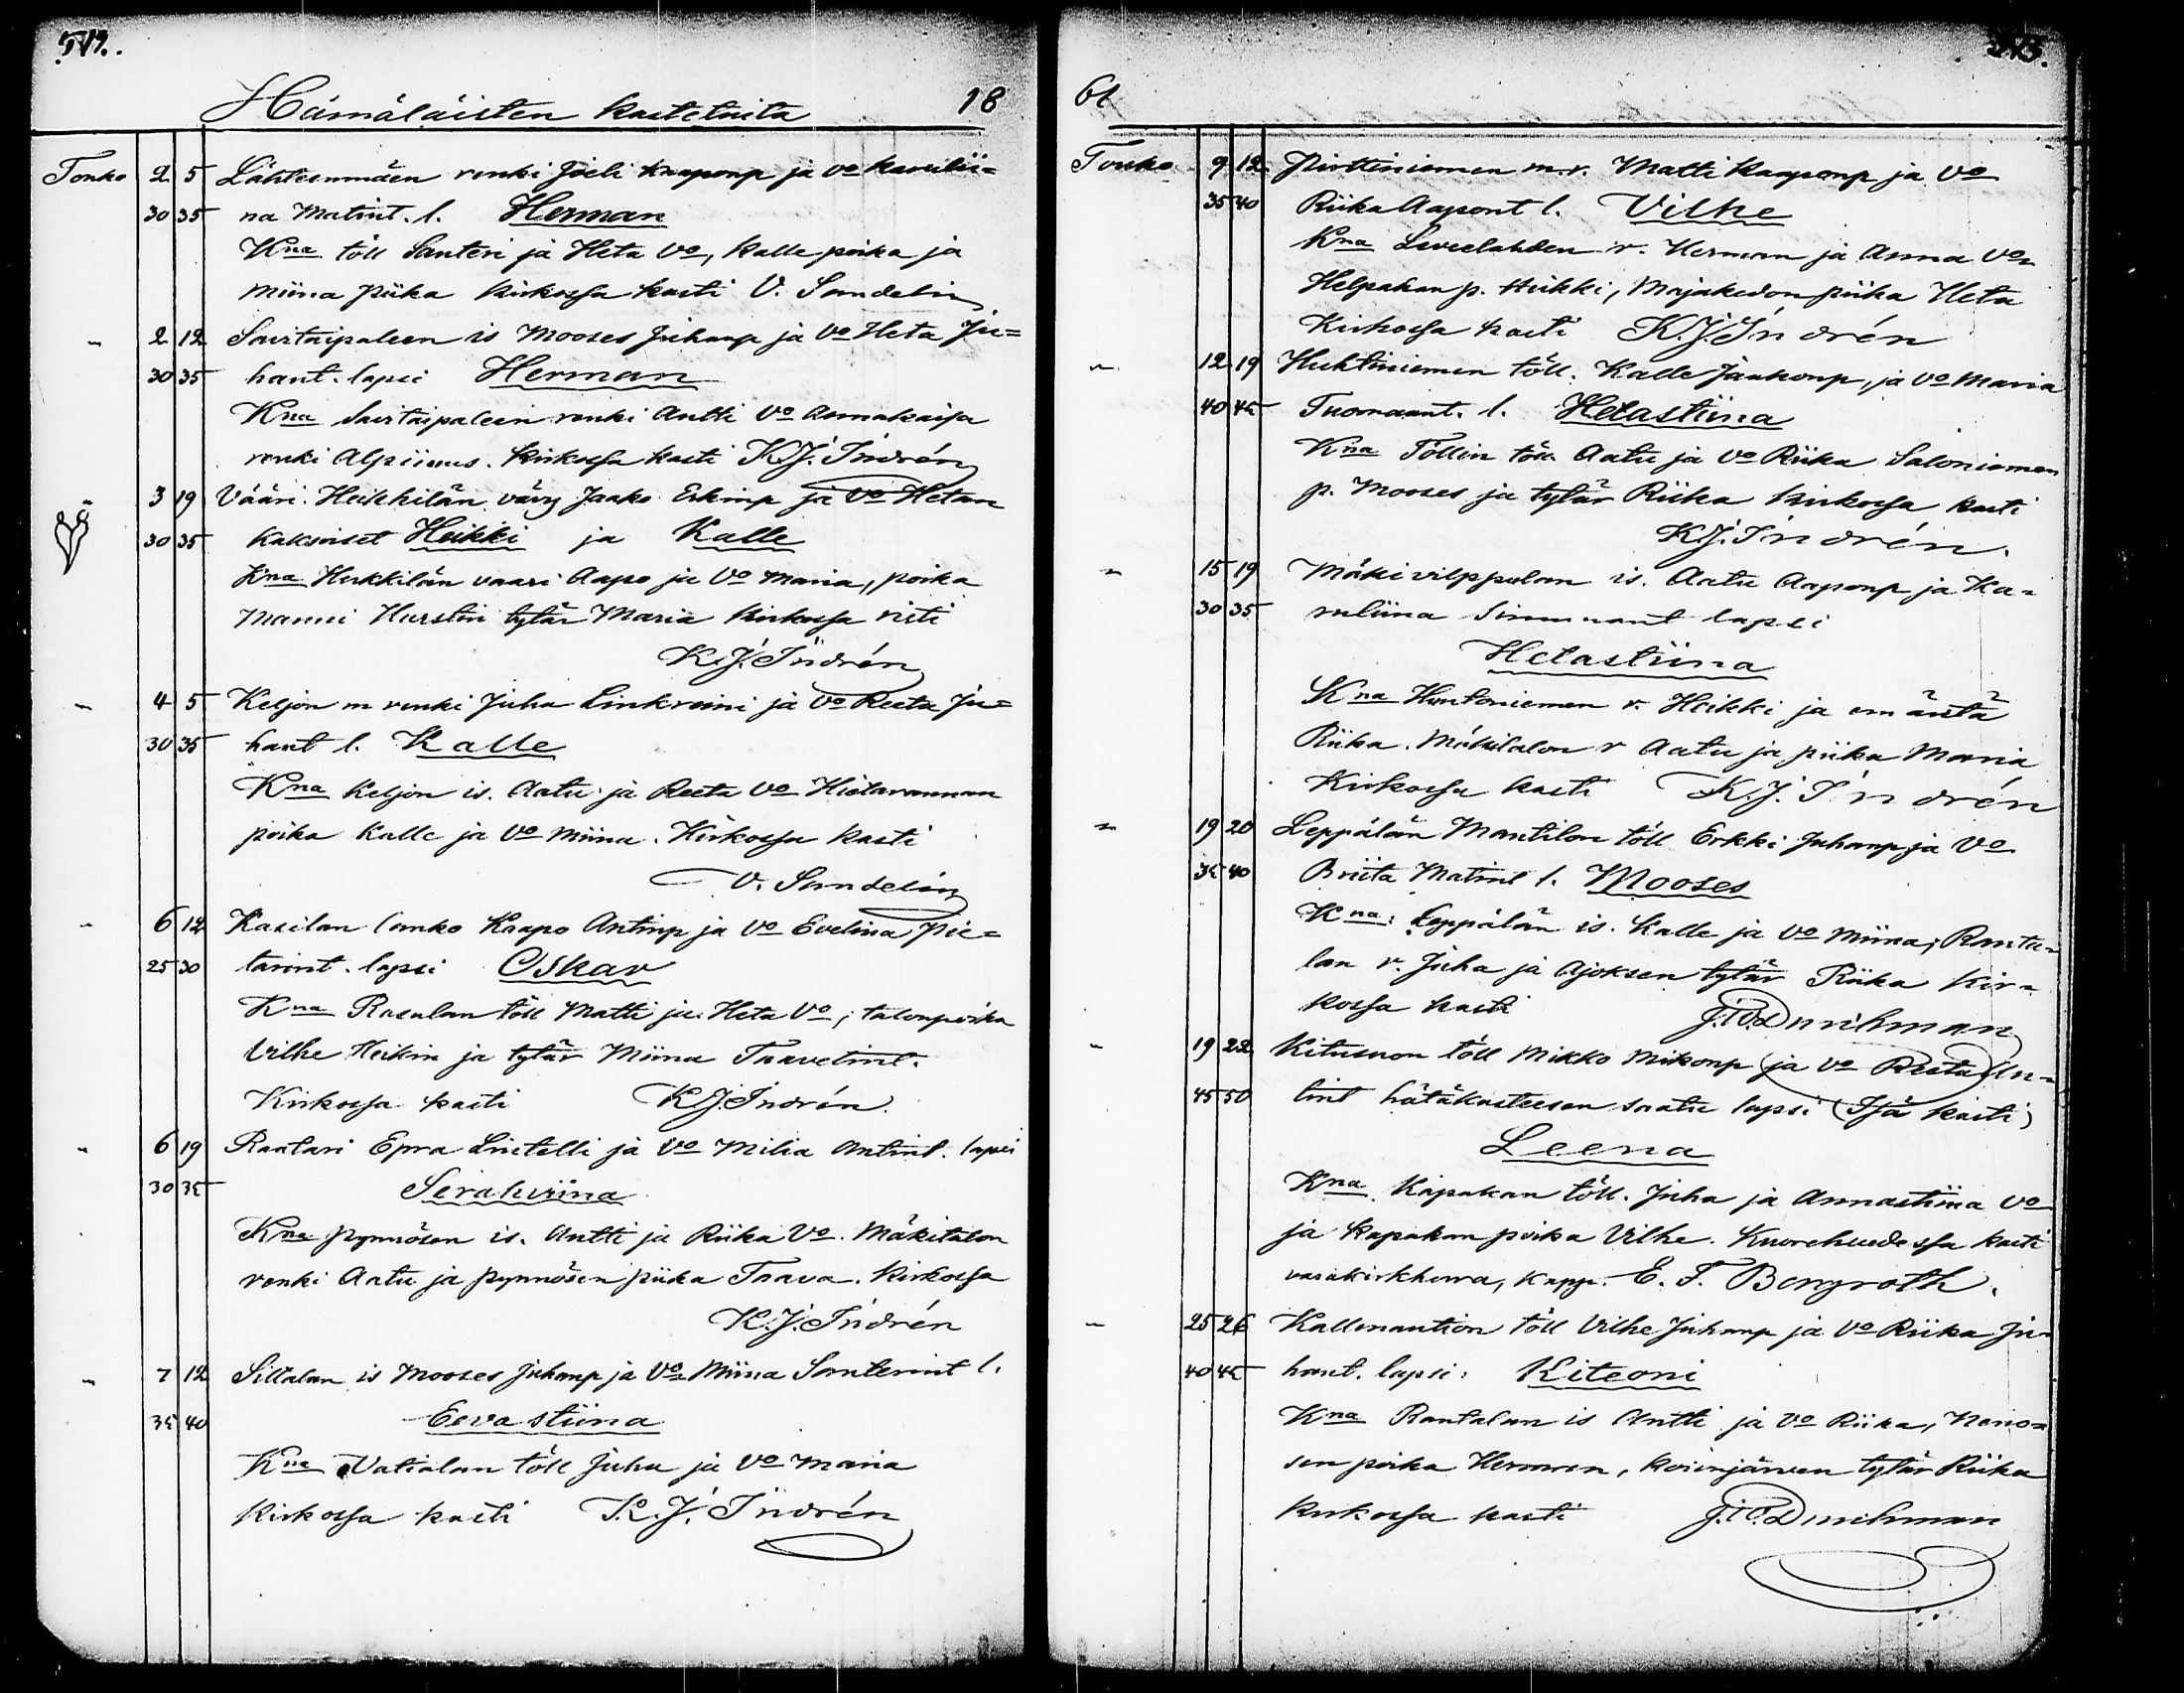 Hämäläisten kastetuita 18
Touko 2 5 Lähteenmäen renki Joeli Kaaponp ja vo Karolii=
30 35 na Matint. l. Herman
Kna töll Santeri ja Heta vo, Kalle poika ja
Miina piika kirkossa kasti V. Sandelin
" 2 12 Savitaipaleen is Mooses Juhanp ja vo Heta Ju=
30 35 hant. lapsi Herman
Kna Savitaipaleen renki Antti vo Annakaisa
renki Alpiinus. Kirkossa kasti K.J. Indrén
" 3 19 Vääri. Heikkilän vävy Jaako Erkinp ja vo Hetan
30 35 kaksoiset Heikki ja Kalle
Kna Heikkilän vaari Aapo ja vo Maria, poika
Manni Hurstin tytär Maria kirkossa risti
K.J. Indrén
" 4 5 Keljon m renki Juha Linkreini ja vo Reeta Ju=
30 35 hant l. Kalle
Kna Keljon is. Aatu ja Reeta vo Hietarannan
poika Kalle ja vo Miina. Kirkossa kasti
V. Sandelin
" 6 12 Kasilan lanko Kaapo Antinp ja vo Evelina Pie=
25 30 tarint. lapsi Oskar
Kna Rasulan töll Matti ja Heta vo, talonpoika
Vilhe Heikin ja tytär Miina Taavetint.
Kirkossa kasti K.J. Indrén.
" 6 19 Räätäri Epra Listelli ja vo Milia Antint. lapsi
30 35 Serahviina
Kna Pynnösen is. Antti ja Riika vo. Mäkitalon
renki Aatu ja Pynnösen piika Taava. Kirkossa
K.J. Indrén
" 7 12 Siltalan is Mooses Juhanp ja vo Miina Santerint l.
35 40 Eevastiina
Kna Vatialan töll Juha ja vo Maria
Kirkossa kasti K.J. Indrén
61
Touko 9 12 Pirttiniemen m.r. Matti Kaaponp ja vo
35 40 Riika Aapont l. Vilhe
Kna Leveelahden r. Herman ja Anna vo
Helpakan p. Heikki, Majakedon piika Heta
Kirkossa kasti K.J. Indrén
" 12 19 Huhtiniemen töll. Kalle Jaakonp, ja vo Maria
40 45 Tuomaant. l. Hetastiina
Kna Töllin töll Aatu ja vo Riika Saloniemen
p. Mooses ja tytär Riika kirkossa kasti
K.J. Indrén.
" 15 19 Mäkivilppulan is. Aatu Aaponp ja Ka=
30 35 ruliina Simunant lapsi
Hetastiina
Kna Huntoniemen r. Heikki ja emäntä
Riika. Mäkitalon r Aatu ja piika Maria
Kirkossa kasti K.J. Indrén
" 19 20 Leppälän Mantilan töll Erkki Juhanp ja vo
35 40 Briita Matint l. Mooses
Kna: Leppälän is. Kalle ja vo Miina, Ranta=
lan r. Juha ja Ajoksen tytär Riika Kir=
kossa kasti J.W. Durchman
" 19 22 Kitusuon töll Mikko Mikonp ja vo Reeta An=
45 50 tint hätäkasteesen saatu lapsi (Isä kasti)
Leena
Kna. Kapakan töll. Juha ja Annastiina vo
ja Kapakan poika Vilhe. Kuorehvedessa kasti
varakirkherra, kapp. E. F. Bergroth.
" 25 26 Kallenaution töll Vilhe Juhanp ja vo Riika Ju=
40 45 hant. lapsi: Kiteoni
Kna Rantalan is Antti ja vo Riika, Nono=
sen poika Herman, Koivujärven tytär Riika
Kirkossa kasti J.W. Durchman